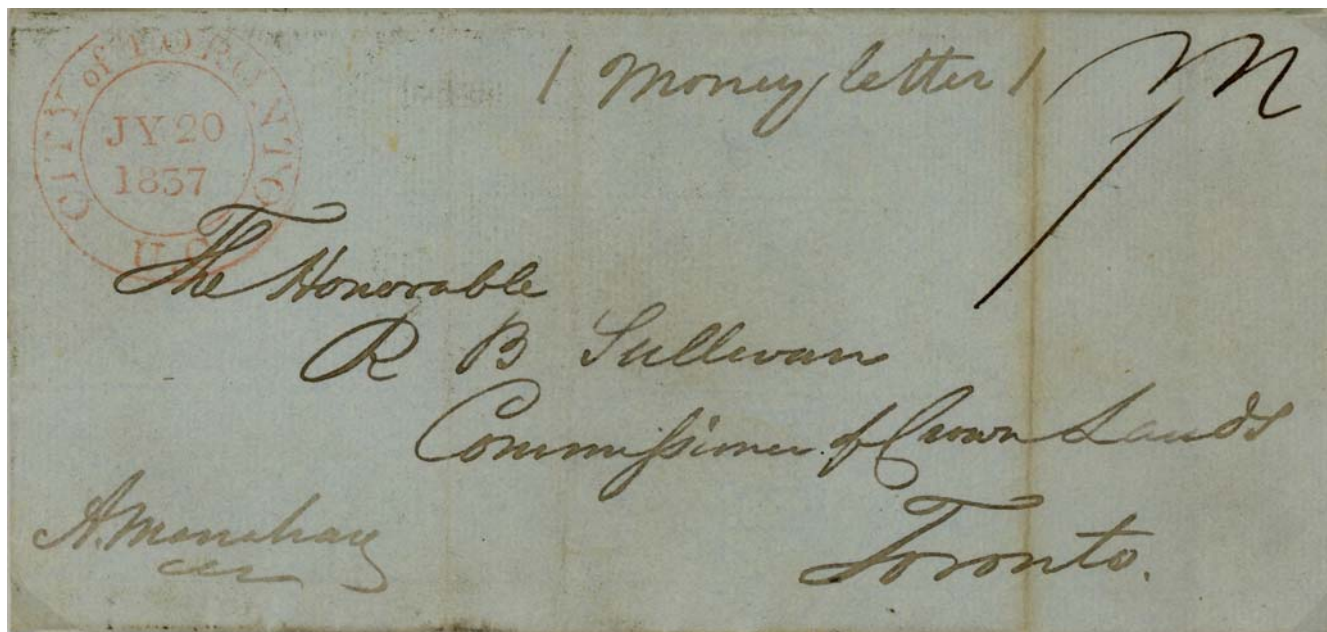 CITY of TORONTO
JY 20
1837
U.C.
/ Money letter /
The Honorable
R B Sullivan
Commissioner of Crown Lands
Toronto.
A. Manahan